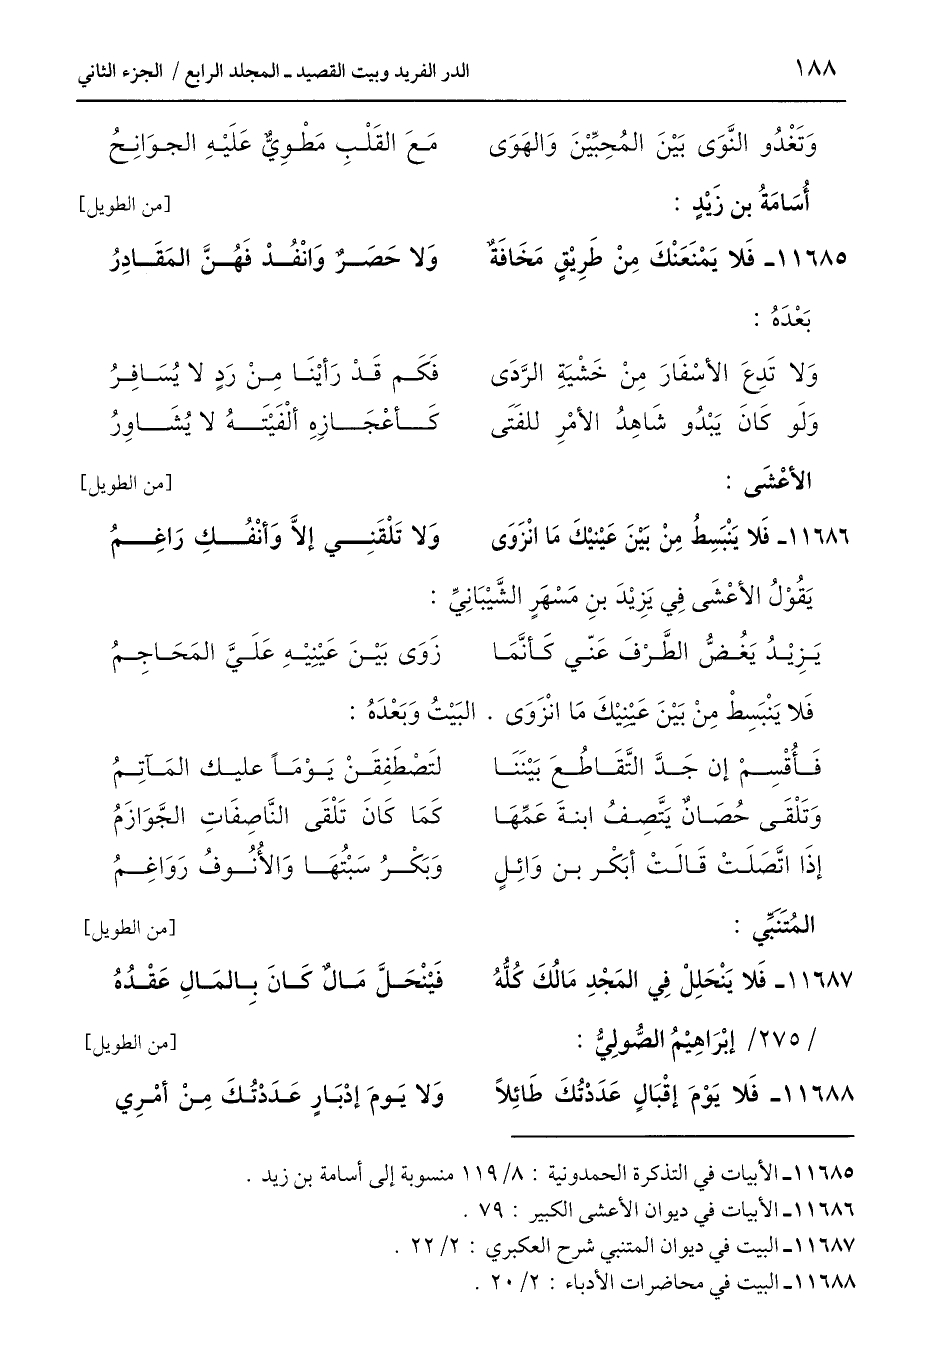 ١٨٨ الدر الفريد وبيت القصيد ـ المجلد الرابع / الجزء الثاني
وَتَغْدُو النَّوَى بَيْنَ المُحِبِّيْنَ وَالهَوَى مَعَ القَلْبِ مَطْوِيٌّ عَلَيْهِ الجوَانِحُ
أُسَامَةُ بن زَيْدٍ : [من الطويل]
١١٦٨٥ـ فَلا يَمْنَعَنْكَ مِنْ طَرِيْقٍ مَخَافَةٌ وَلا حَصَرٌ وَانْفُذْ فَهُنَّ المَقَادِرُ
بَعْدَهُ :
وَلا تَدِعَ الأسْفَارَ مِنْ خَشْيَةِ الرَّدَى فَكَم قَدْ رَأيْنَا مِنْ رَدٍ لا يُسَافِرُ
وَلَو كَانَ يَبْدُو شَاهِدُ الأمْرِ للفَتَى كَأعْجَازِهِ ألْفَيْتَهُ لا يُشَاوِرُ
الأعْشَى : [من الطويل]
١١٦٨٦ـ فَلا يَنْبَسِطُ مِنْ بَيْنَ عَيْنِيْكَ مَا انْزَوَى وَلا تَلْقَنِي إلاَّ وَأنْفُكِ رَاغِمُ
يَقُوْلُ الأعْشَى فِي يَزِيْدَ بنِ مَسْهَرٍ الشَّيْبَانِيِّ :
يَزِيْدُ يَغُضُّ الطَّرْفَ عَنّي كَأنَّمَا زَوَى بَيْنَ عَيْنِيْهِ عَلَيَّ المَحَاجِمُ
فَلا يَنبَسِطْ مِنْ بَيْنَ عَيْنِيْكَ مَا انْزَوَى . البَيْتُ وَبَعْدَهُ :
فَأُقْسِمْ إن جَدَّ التَّقَاطُعَ بَيْنَنَا لَتَصْطَفِقَنْ يَوْمَاً عليك المَآتِمُ
وَتَلْقَى حُصَانٌ يَتَّصِفُ ابنةَ عَمِّهَا كَمَا كَانَ تَلْقَى النَّاصِفَاتِ الجَّوَازَمُ
إذَا اتَّصَلَتْ قَالَتْ أبَكْر بن وَائِلٍ وَبَكْرُ سَبْتُهَا وَالأُنُوفُ رَوَاغِمُ
المُتَنَبِّي : [من الطويل]
١١٦٨٧ـ فَلا يَنْحَلِلْ فِي المَجْدِ مَالُكَ كُلُّهُ فَيَنْحَلَّ مَالٌ كَانَ بِالمَالِ عَقْدُهُ
/ ٢٧٥/ إبْرَاهِيْمُ الصُّولِيُّ : [من الطويل]
١١٦٨٨ـ فَلا يَوْمَ إقْبَالٍ عَدَدْتُكَ طَائِلاً وَلا يَومَ إدْبَارٍ عَدَدْتُكَ مِنْ أمْرِي
١١٦٨٥ـ الأبيات في التذكرة الحمدونية : ١١٩/٨ منسوبة إلى أسامة بن زيد .
١١٦٨٦ـ الأبيات في ديوان الأعشى الكبير : ٧٩ .
١١٦٨٧ـ البيت في ديوان المتنبي شرح العكبري : ٢٢/٢ .
١١٦٨٨ـ البيت في محاضرات الأدباء : ٢٠/٢ .